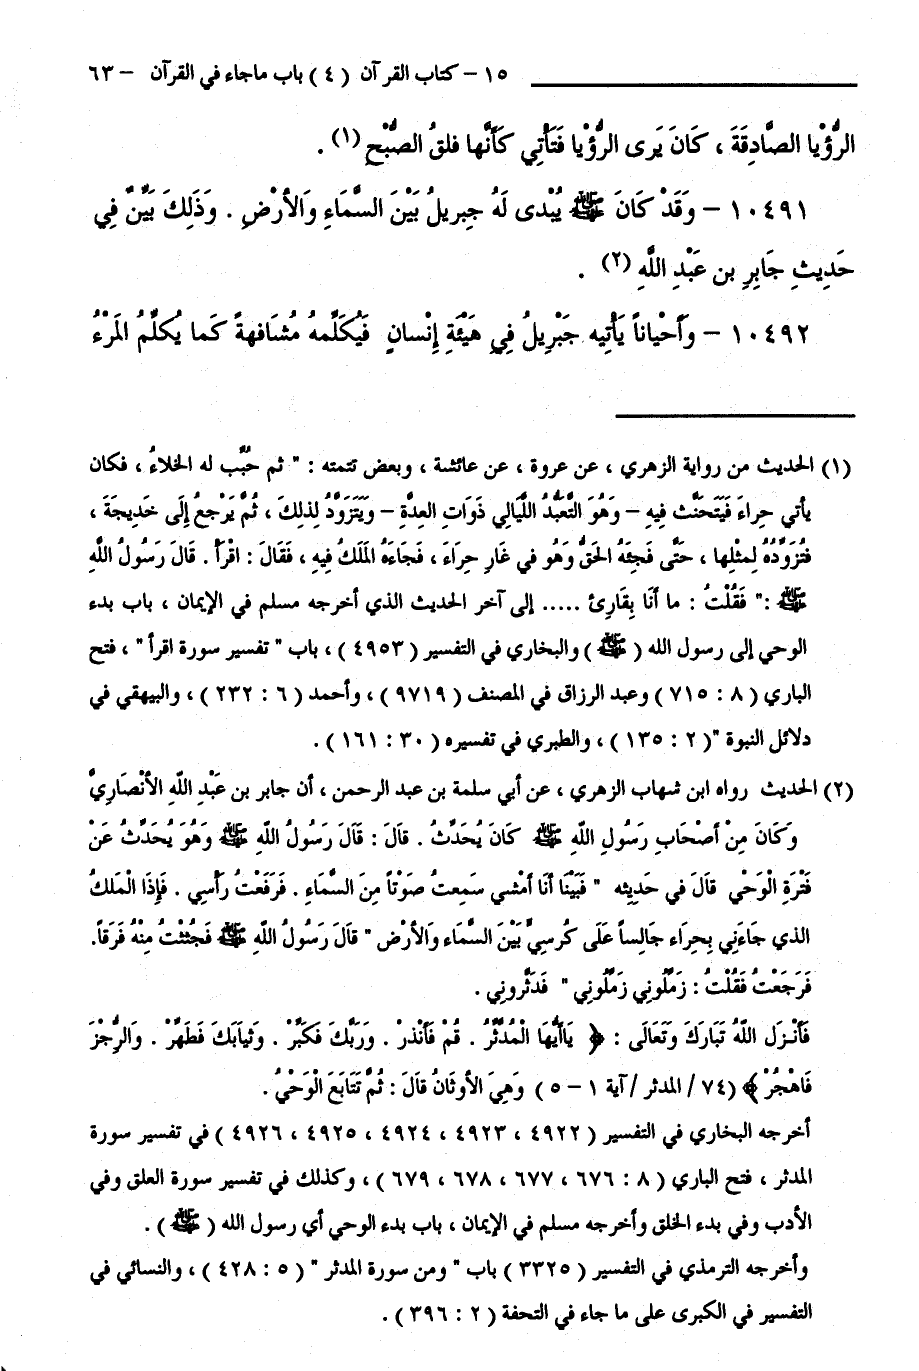 ١٥ – كتاب القرآن (٤) باب ماجاء في القرآن – ٦٣
الرُّؤْيا الصَّادِقَةَ ، كَانَ يَرى الرُّؤْيا فَتَأْتِي كَأَنَّها فلقُ الصُّبْحِ (١) .
١٠٤٩١ – وَقَدْ كَانَ ﷺ يُبْدى لَهُ جِبريلُ بَيْنَ السَّمَاءِ وَالأرْضِ . وَذَلِكَ بَيِّنٌ فِي
حَدِيثِ جَابِرِ بن عَبْدِ اللَّهِ (٢) .
١٠٤٩٢ – وَأَحْياناً يَأْتِيه جَبْرِيلُ فِي هَيْئَةِ إِنْسانٍ فَيُكَلِّمهُ مُشَافهةً كَما يُكلِّمُ المَرْءُ
(١) الحديث من رواية الزهري ، عن عروة ، عن عائشة ، وبعض تتمته : " ثم حُبِّب له الخلاءُ ، فكان
يأتي حِراءَ فَيَتَحَنَّث فِيهِ – وَهُوَ التَّعَبُّدُ اللَّيَالِي ذَوَاتِ العِدةِ – وَيَتَزَوَّدُ لِذلِكَ ، ثُمَّ يَرْجعُ إِلَى خَدِيجةَ ،
فتُزَوِّدُهُ لِمثْلِها ، حَتَّى فَجِئَهُ الحَقُّ وَهُو في غَارِ حِرَاءَ ، فَجاءَهُ المَلَكُ فِيهِ ، فَقَالَ : اقْرَأْ . قَالَ رَسُولُ اللَّهِ
ﷺ :" فَقُلْتُ : ما أنَا بِقَارِئ ..... إلى آخر الحديث الذي أخرجه مسلم في الإيمان ، باب بدء
الوحي إلى رسول الله ( ﷺ ) والبخاري في التفسير ( ٤٩٥٣ ) ، باب " تفسير سورة اقرأ " ، فتح
الباري ( ٨ : ٧١٥ ) وعبد الرزاق في المصنف ( ٩٧١٩ ) ، وأحمد ( ٦ : ٢٣٢ ) ، والبيهقي في
دلائل النبوة "( ٢ : ١٣٥ ) ، والطبري في تفسيره ( ٣٠ : ١٦١ ) .
(٢) الحديث رواه ابن شهاب الزهري ، عن أبي سلمة بن عبد الرحمن ، أن جابر بن عَبْدِ اللّهِ الأَنْصَارِيَّ
وَكَانَ مِنْ أصْحَابِ رَسُولِ اللهِ ﷺ كَانَ يُحَدِّثُ . قالَ : قَالَ رَسُولُ اللّهِ ﷺ وَهُوَ يُحَدِّثُ عَنْ
فَتْرَةِ الْوَحْي قالَ في حَدِيثِه " فَبَيْنَا أنَا أمْشي سَمِعتُ صَوْتاً مِنَ السَّمَاءِ . فَرَفَعْتُ رَأْسِي . فَإِذَا الْمَلَكُ
الذي جَاءَنِي بِحِرَاء جَالِساً عَلَى كُرسِيٍّ بَيْنَ السَّمَاء وَالأرْض " قالَ رَسُولُ اللّهِ ﷺ فَجُئِثْتُ مِنْهُ فَرَقاً.
فَرَجَعْتُ فَقُلْتُ : زَمِّلُونِي زَمِّلُونِي " فَدَثَّرونِي .
فَأَنزلَ اللّهُ تَبَارَكَ وَتَعَالَى : ﴿ يَاأَيُّهَا الْمُدَّثِّرُ . قُمْ فَأَنْذرْ . وَرَبَّكَ فَكَبِّرْ . وَثيابَكَ فَطَهِّرْ . وَالرُّجْزَ
فَاهْجُرْ ﴾ (٧٤ / المدثر / آية ١ – ٥) وَهِيَ الأوْثَانُ قَالَ : ثُمَّ تَتَابَعَ الْوَحْيُ .
أخرجه البخاري في التفسير ( ٤٩٢٢ ، ٤٩٢٣ ، ٤٩٢٤ ، ٤٩٢٥ ، ٤٩٢٦ ) في تفسير سورة
المدثر ، فتح الباري ( ٨ : ٦٧٦ ، ٦٧٧ ، ٦٧٨ ، ٦٧٩ ) ، وكذلك في تفسير سورة العلق وفي
الأدب وفي بدء الخلق وأخرجه مسلم في الإيمان ، باب بدء الوحي أي رسول الله ( ﷺ ) .
وأخرجه الترمذي في التفسير ( ٣٣٢٥ ) باب " ومن سورة المدثر " ( ٥ : ٤٢٨ ) ، والنسائي في
التفسير في الكبرى على ما جاء في التحفة ( ٢ : ٣٩٦ ) .